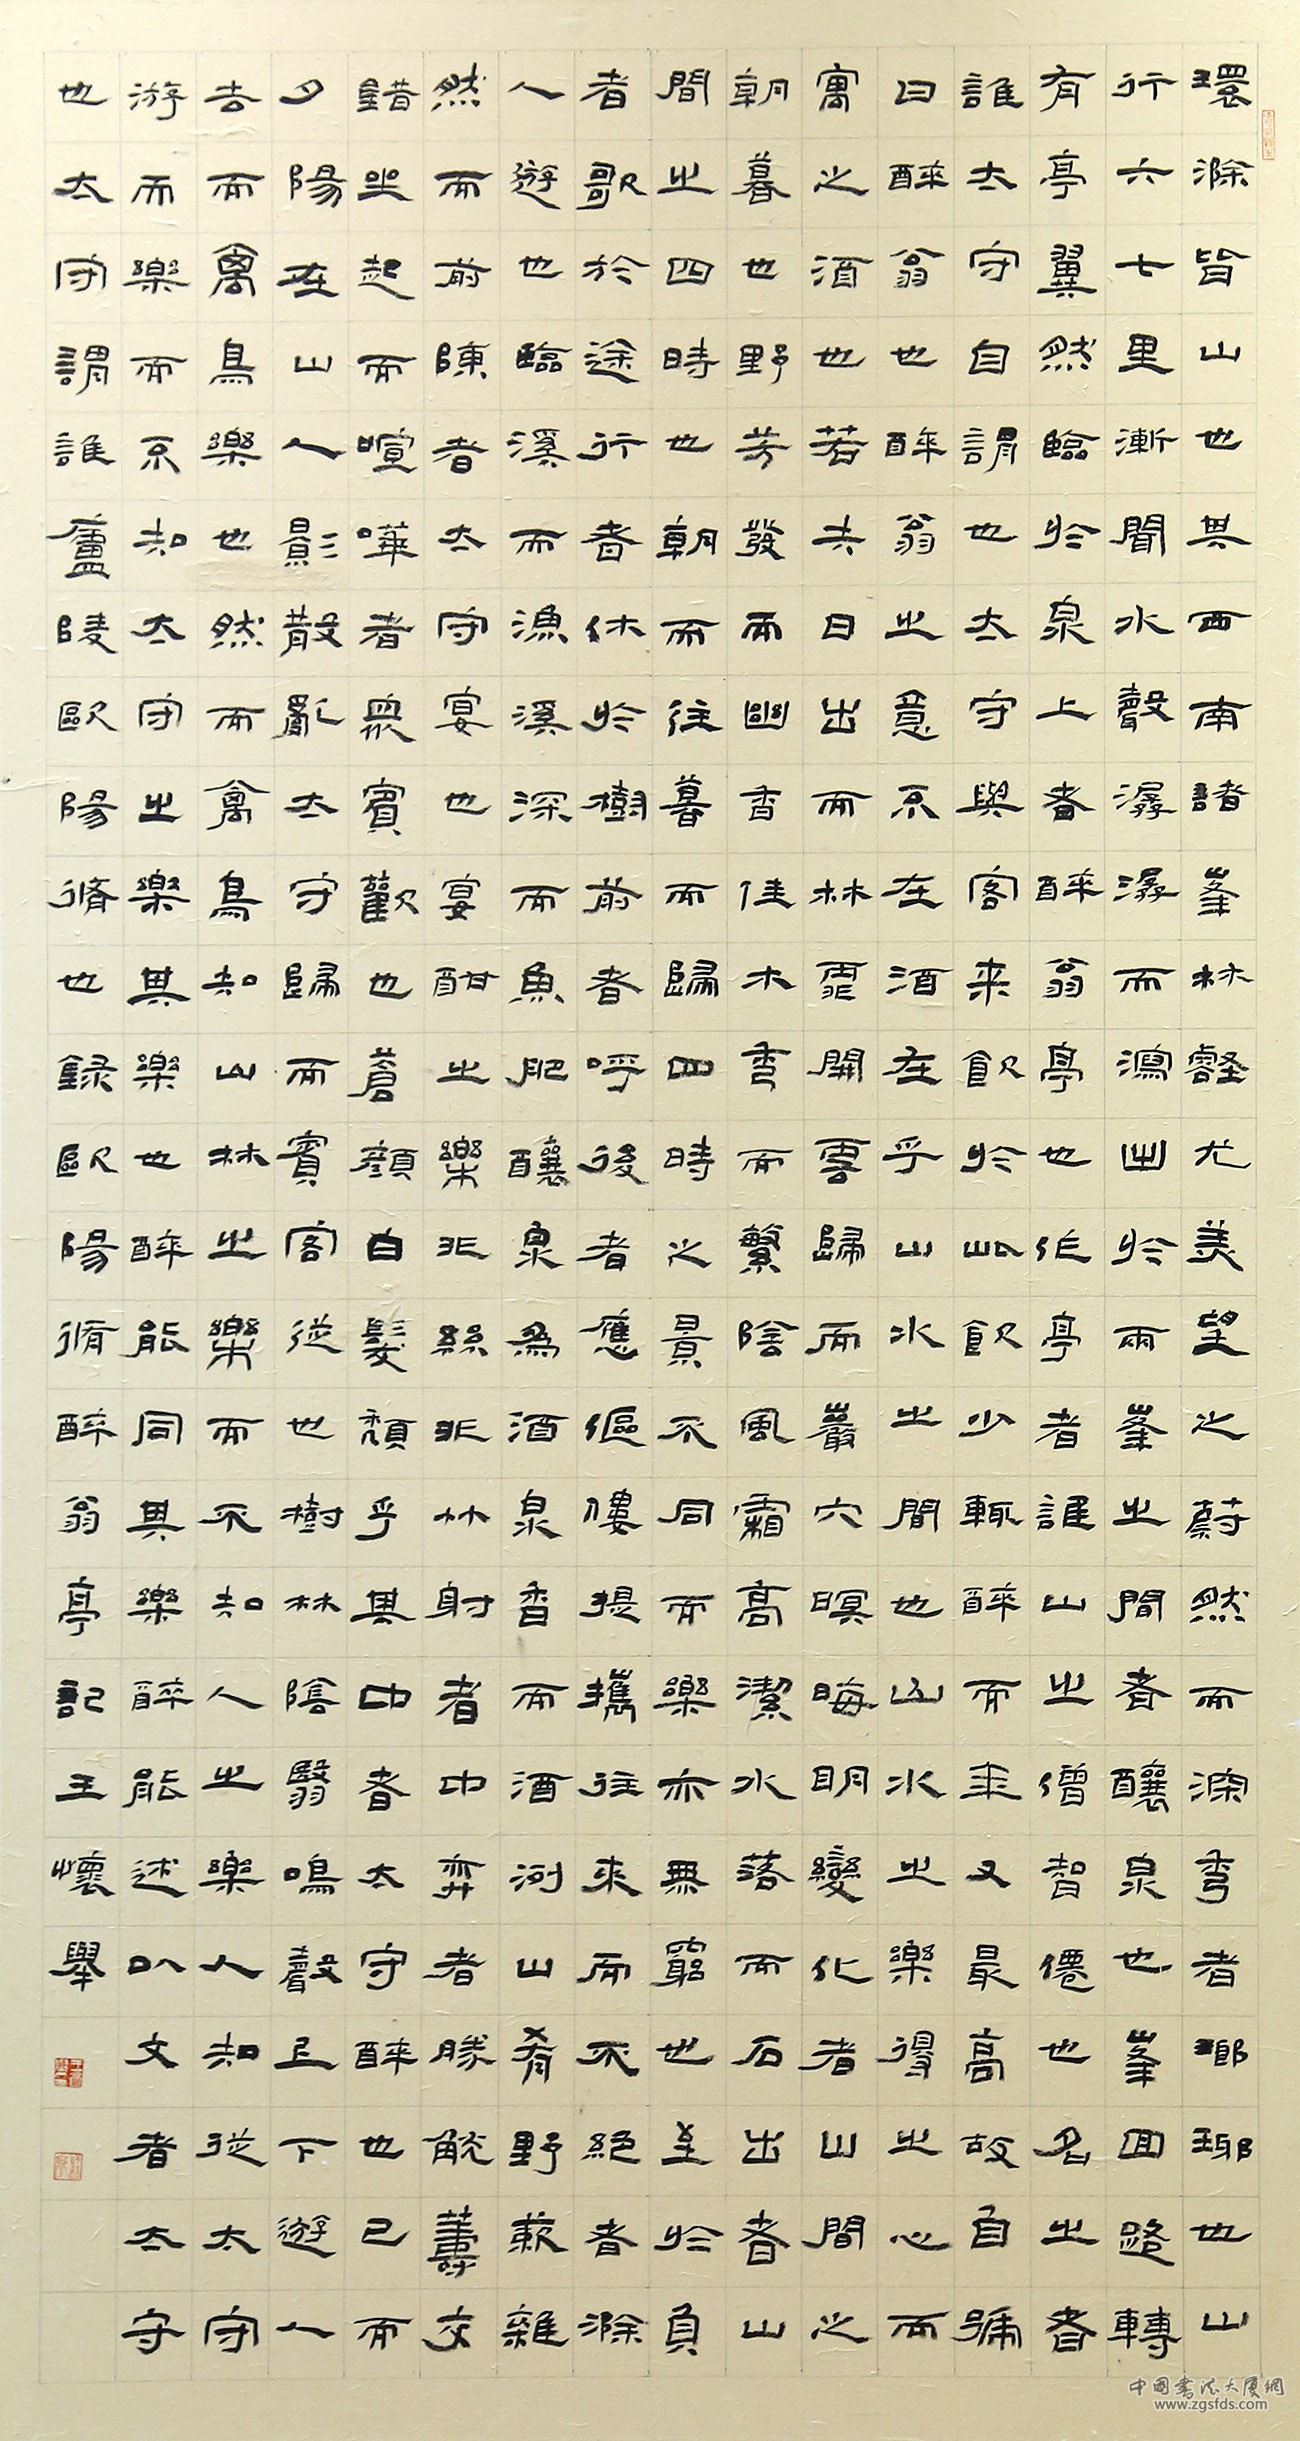 環滁皆山也其西南諸峯林壑尤美望之蔚然而深秀者瑯琊也山
行六七里漸聞水聲潺潺而瀉出於兩峯之間者釀泉也峯回路轉
有亭翼然臨於泉上者醉翁亭也作亭者誰山之僧智僊也名之者
誰太守自謂也太守與客来飲於此飲少輒醉而年又最高故自號
曰醉翁也醉翁之意不在酒在乎山水之間也山水之樂得之心而
寓之酒也若夫日出而林霏開雲歸而巖穴暝晦明變化者山間之
朝暮也野芳發而幽香佳木秀而繁陰風霜高潔水落而石出者山
間之四時也朝而往暮而歸四時之景不同而樂亦無窮也至於負
者歌於途行者休於樹前者呼後者應傴僂提攜往來而不絕者滁
人遊也臨溪而漁溪深而魚肥釀泉為酒泉香而酒洌山肴野蔌雜
然而前陳者太守宴也宴酣之樂非絲非竹射者中弈者勝觥籌交
錯坐起而喧嘩者衆賓歡也蒼顏白髮頹乎其中者太守醉也已而
夕陽在山人影散亂太守歸而賓客從也樹林陰翳鳴聲上下遊人
去而禽鳥樂也然而禽鳥知山林之樂而不知人之樂人知從太守
游而樂而不知太守之樂其樂也醉能同其樂醉能述以文者太守
也太守謂誰廬陵歐陽脩也錄歐陽脩醉翁亭記王懷舉
中国书法大厦網
www.zgsfds.com